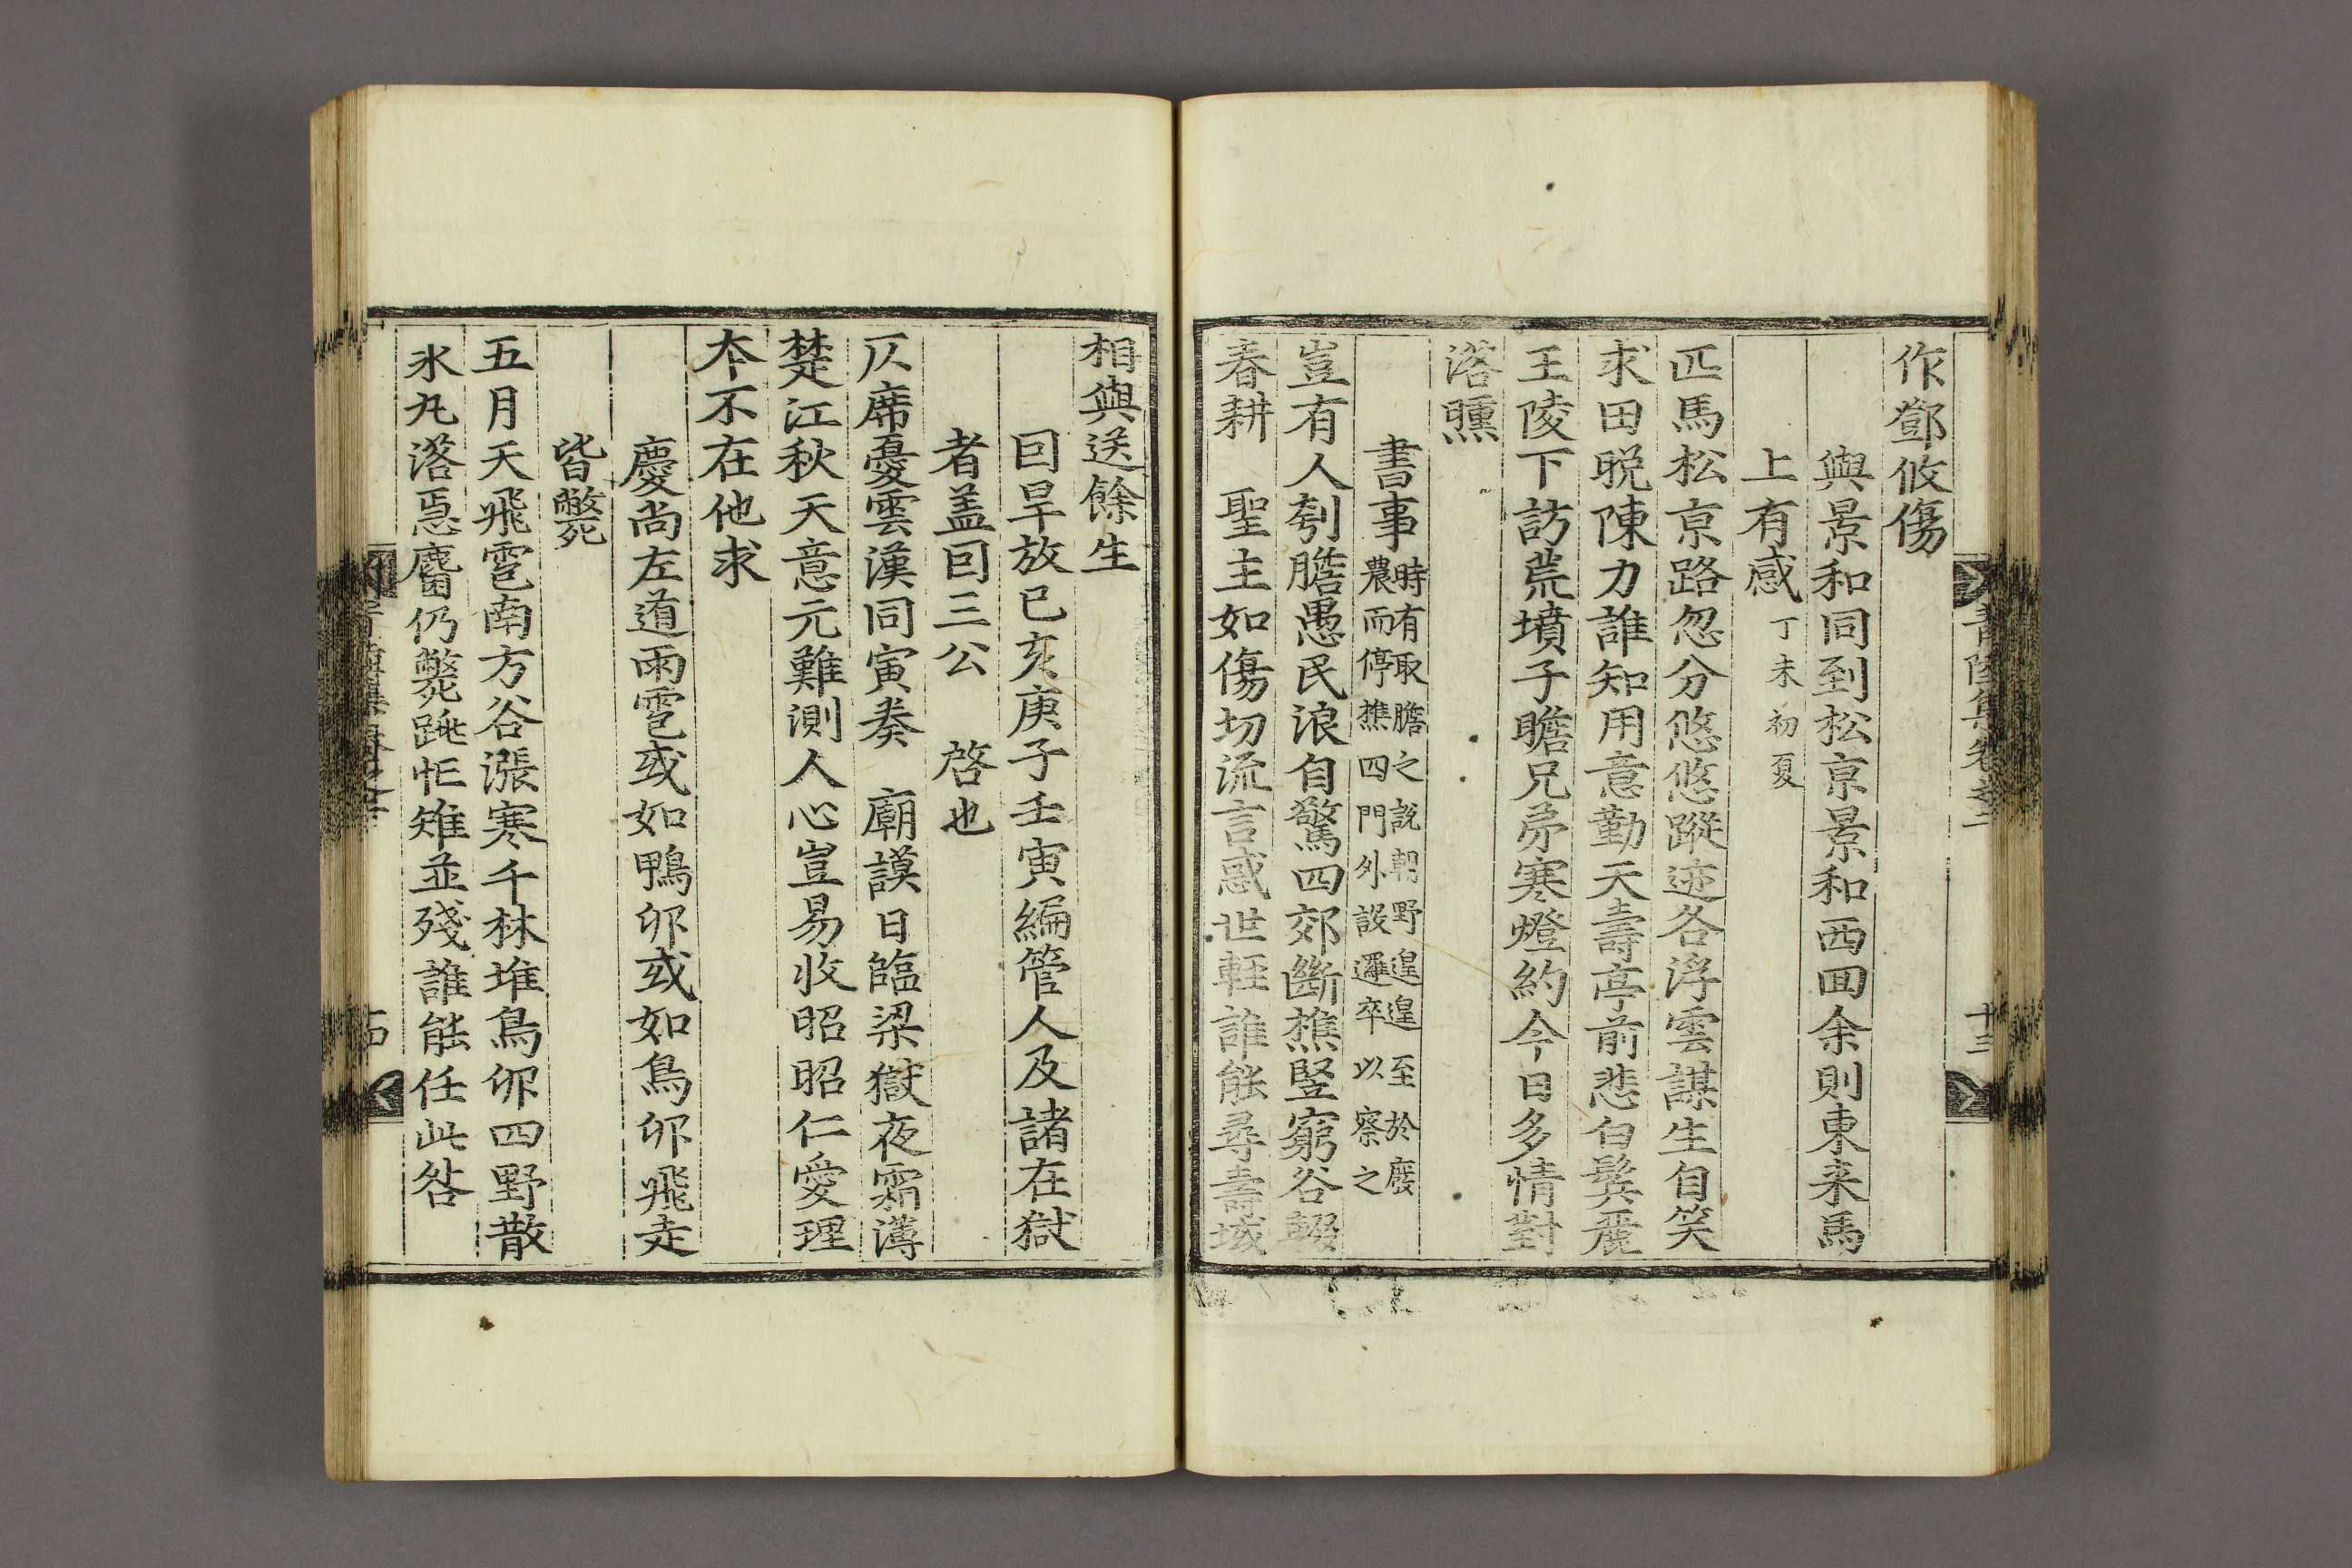 作鄧攸傷
與景和同到松京景和西回余則東来馬
上有感丁未初夏
匹馬松京路忽分悠悠蹤迹各浮雲謀生自笑
求田晩陳力誰知用意勤天壽亭前悲白鬂麗
王陵下訪荒墳子瞻兄弟寒燈約今日多情對
落曛
書事時有取膽之説朝野遑遑至於廢
農而停樵四門外設邏卒以察之
豈有人刳膽愚民浪自驚四郊斷樵竪窮谷輟
春耕 聖主如傷切流言惑世輕誰能尋壽域
十三
相與送餘生
囙旱放已亥庚子壬寅編管人及諸在獄
者盖囙三公 啓也
仄席憂雲漢同寅奏 廟謨日臨梁獄夜霜薄
楚江秋天意元難測人心豈易收昭昭仁愛理
夲不在他求
慶尚左道雨雹或如鴨卵或如鳥卵飛走
皆斃死
五月天飛雹南方谷漲寒千林堆鳥卵四野散
氷丸落急麕仍斃跳忙雉並殘誰能任此咎